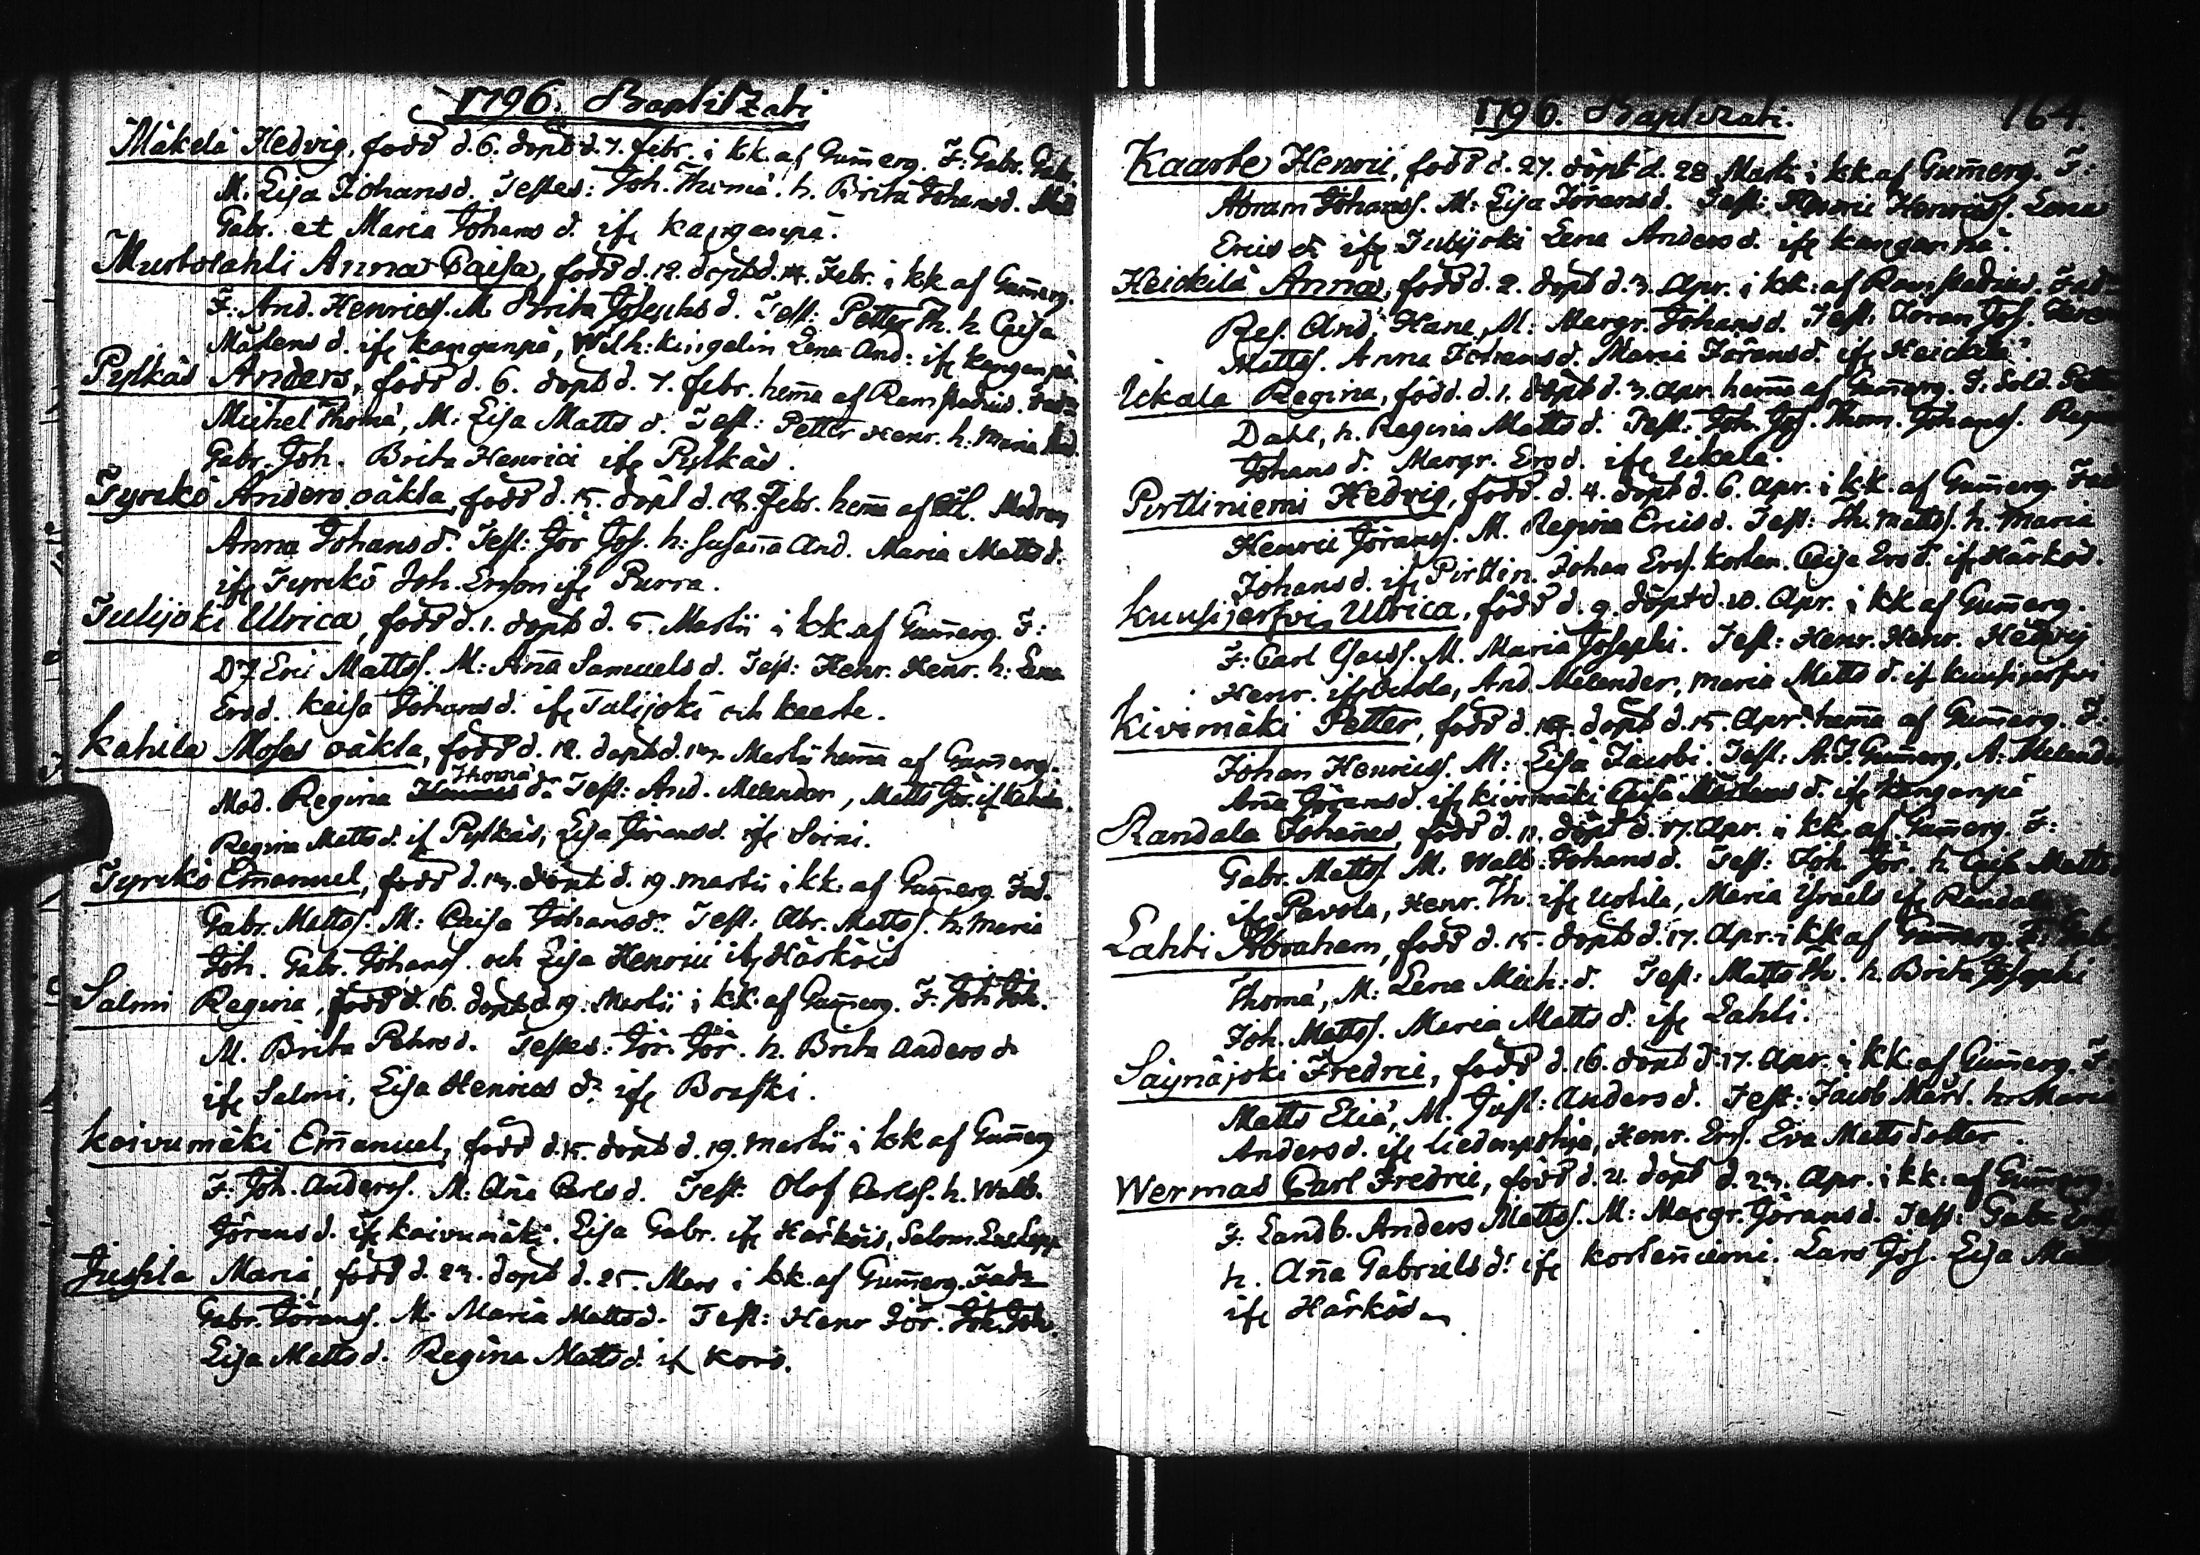 1796. Baptitzati
Mäkelä Hedvig, född d. 6. döpt d. 7. febr. i kk. af Gum̄erg. F: Gabr. Gabr.
M. Lisa Johansd. Testes: Joh. Thomä. h. Brita Johansd.
Gabr. et Maria Johans d. ifr Kanganpä.
Mustolahti Anna Caisa, född d. 12. döpt d. 14. Febr. i kk af Gum̄erg.
F: And. Henricss. M. Brita Josephs d. Test: Petter Th. h. Caisa
Mårtens d. ifr Kanganpä, Wilh: Kingelin Lena And: ifr Kanganpä.
Pylkäs Anders, född d. 6. döpt d. 7. febr. hem̄a af Ramstadius. Fad:
Michel Thomä, M: Lisa Matts d. Test: Petter Henr. h. Maria
Gabr. Joh. Brita Henrici ifr Pylkäs.
Tyrckö Anders oäkta, född d. 15. döpt d. 18. Febr. hem̄a af Modren
Anna Johans d. Test: Jör Jos. h: Susan̄a And. Maria Matts d.
ifr Tyrckö Joh. Ersson ifr Purra.
Julijoki Ulrica, född d. 1. döpt d. 5. Martii i kk. af Gum̄erg. F:
Eric Mattss. M: An̄a Samuels d. Test: Henr. Henr. h: Lena
Ersd. Kaisa Johans d. ifr Julijoki och Kaarte.
Kahila Moses oäkta, född d. 12. döpt d. 13. Martii hem̄a af Gum̄erg.
Mod. Regina Thomä d: Test: And. Melender, Matts Jör. if Kahila.
Regina Matts d. if Pylkäs, Lisa Jörans d. ifr Soini.
Tyrckö Em̄anuel, född d. 13. döpt d. 19. Martii i kk. af Gum̄erg. Fad.
Gabr. Mattss. M: Caisa Johansd. Test: Abr. Mattss. h. Maria
Joh. Gabr. Johanss. och Lisa Henrici ifr Härköis
Salmi Regina, född d. 16. döpt d. 19. Martii i kk. af Gum̄erg. F: Joh Joh.
M. Brita Pehrs d. Testes: Jör. Jör. h. Brita Anders d
ifr Salmi, Lisa Henrics d: ifr Braski.
Koivumäki Em̄anuel, född d. 15. döpt d. 19. Martii i kk af Gum̄erg
F: Joh. Anderss. M: An̄a Carls d. Test: Olof Carlss. h. Walb.
Jörans d. ifr Koivumäki. Lisa Gabr. ifr Härköis, Salom.
Juskla Maria, född d. 23. döpt d. 25. Mars i kk. af Gum̄erg. Fadr
Gabr. Jöranss. M. Maria Matts d. Test: Henr Jör. Joh. Joh.
Lisa Matts d. Regina Matts d. if Koro.
1796. Baptizati. 164.
Kaarte Henric, född d. 27. döpt d. 28 Martii i kk af Gum̄erg. F:
Abram Johanss. M: Lisa Jörans d. Test: Henric Henricss. Lena
Erics d. ifr Julijoki Lena Anders d. ifr Kanganpä.
Heickilä Anna, född d. 2. döpt d. 3. Apr. i kk. af Ramstadius. Fad
Res. And: Hane, M: Margr. Johans d. Test: Jöran Jos.
Mattss. Anna Johans d. Maria Jörans d. ifr Heickilä.
Ukala Regina, född. d. 1. döpt d. 3. Apr. hem̄a af Gum̄erg. F: Sold. Petter
Dahl, h. Regina Matts d. Test: Joh. Jos. Thom. Johanss. Regina
Johans d. Margr. Ers d. ifr Ukala.
Pirttiniemi Hedvig, född. d. 4. döpt d. 6. Apr. i kk. af Gum̄erg. Fad
Henric Jöranss. M. Regina Erics d. Test: Th. Mattss. h. Maria
Johans d. ifr Pirttin. Johan Erss. Korten. Caisa Ers d. ifr Härkös.
Kuusijerfvi, Ulrica, född d. 9. döpt d. 10. Apr. i kk af Gum̄erg.
F: Carl M. Maria Josephi. Test: Henr. Henr. Hedvig
Henr. ifr And. Melender, Maria Matts d. if Kuusijerfvi
Kivimäki Petter, född d. 14. döpt d. 15. Apr. hem̄a af Gum̄erg. F:
Johan Henricss. M: Lisa Jacobi. Test: A. J. Gum̄erg, A. Melender
An̄a Jörans d. ifr Kivimäki Caisa Mårtens d. ifr Kanganpä
Randala Johan̄es, född d. 11. döpt d. 17. Apr. i kk. af Gum̄erg. F:
Gabr. Mattss. M. Walb: Johans d. Test: Joh. Jör. h. Caisa Matts.
ifr Pavola, Henr. Th. ifr Uotila, Maria Ysraels ifr Randala
Lahti Abraham, född d. 15. döpt d. 17. Apr. i kk af Gum̄erg. F: Gabr.
Thomä, M: Lena Mich: d. Test: Matts Th. h. Brita Josephi
Joh. Mattss. Maria Matts d. ifr Lahti.
Säynäjoki Fredric, född d. 16. döpt d. 17. Apr. i kk. af Gum̄erg. F:
Matts Eliä, M. Just: Anders d. Test: Jacob Mårt. h. Maria
Anders d. ifr Liedenpohja, Henr. Ers. Eva Mattsdotter.
Wermas Carl Fredric, född d. 21. döpt d. 23. Apr. i kk: af Gum̄erg.
F: Landb. Anders Mattss. M: Margr. Jörans d. Test: Gabr.
h. An̄a Gabriels d: ifr Korten̄iemi. Lars Jos. Lisa
ifr Härkös